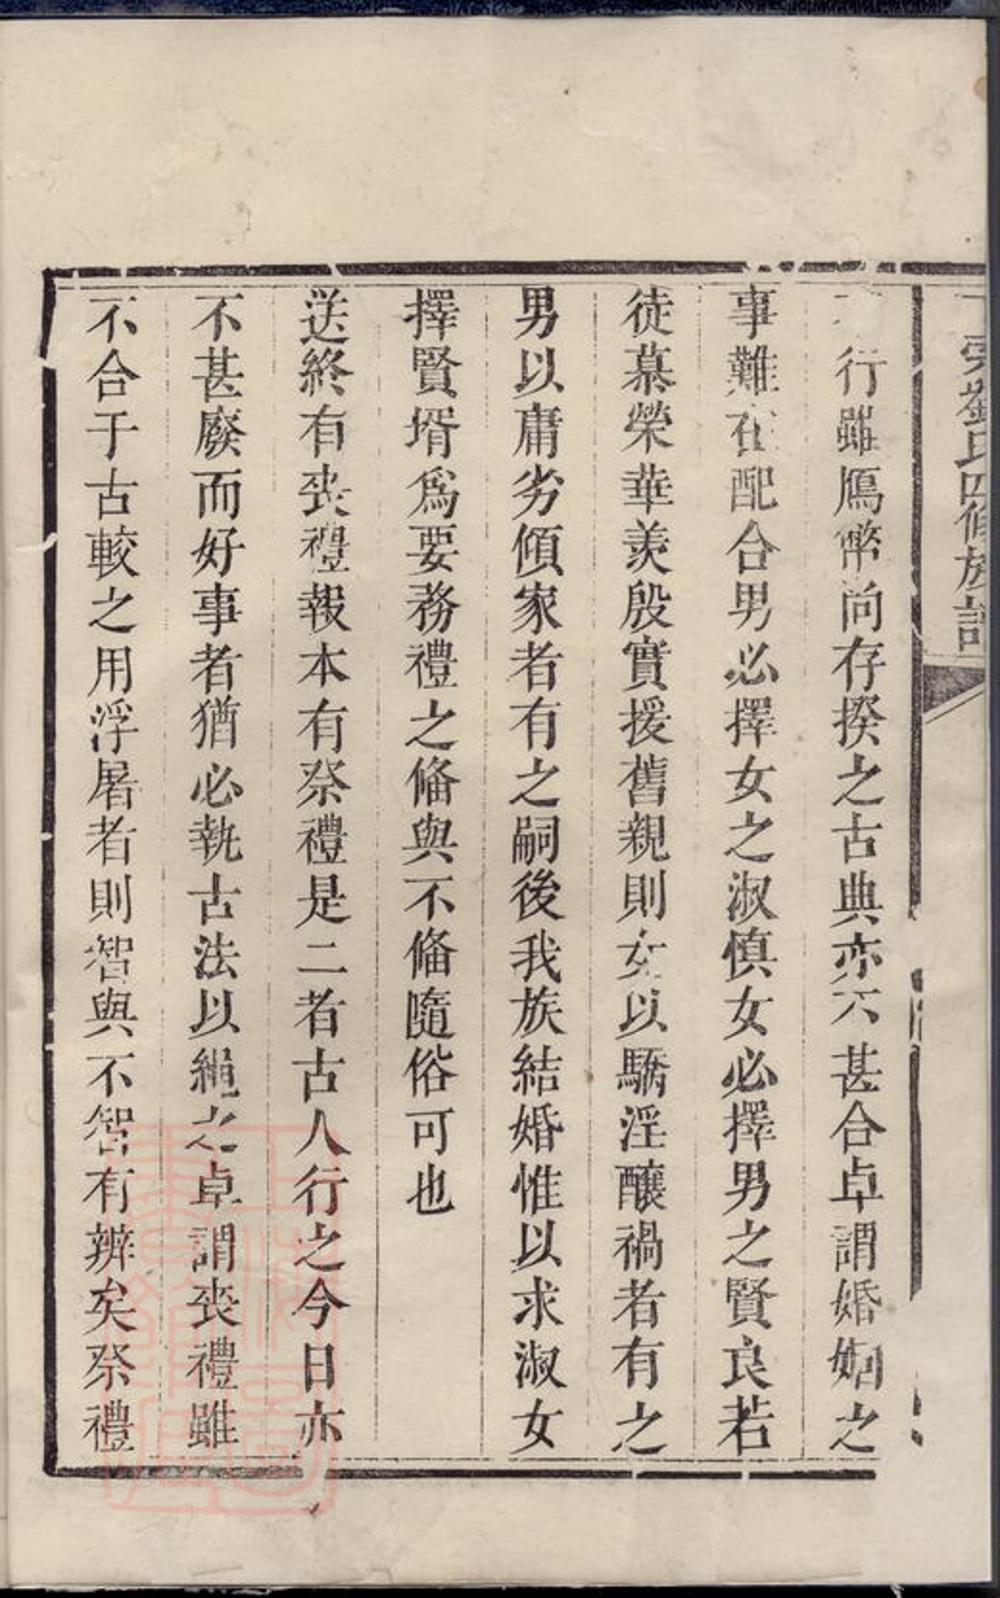 劉氏四修族譜
行雖鴈幣尚存揆之古典亦不甚合卓謂婚姻之
事難在配合男必擇女之淑慎女必擇男之賢良若
徒慕榮華羡殷實援舊親則女以驕淫釀禍者有之
男以庸劣傾家者有之嗣後我族結婚惟以求淑女
擇賢壻爲要務禮之偹與不偹隨俗可也
送終有喪禮報本有祭禮是二者古人行之今日亦
不甚廢而好事者猶必執古法以繩之卓謂喪禮雖
不合于古較之用浮屠者則智與不智有辨矣祭禮